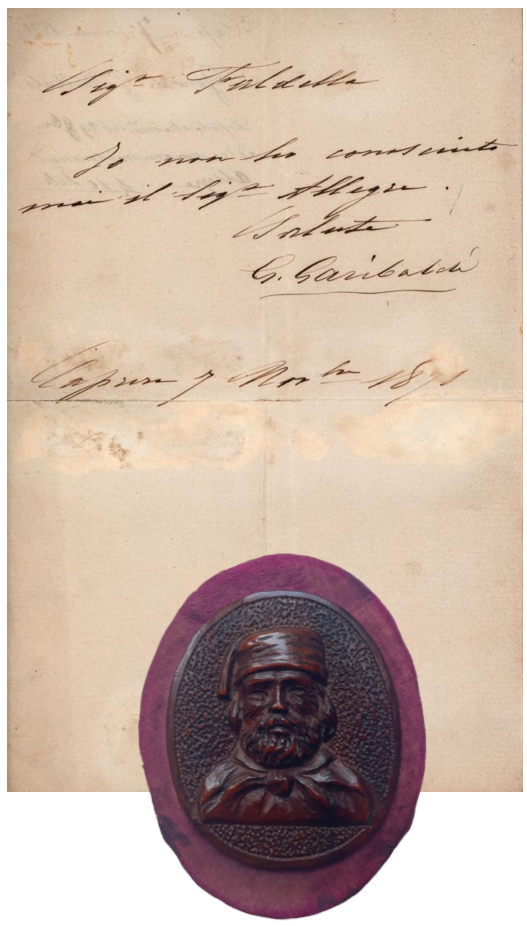 Sigr Faldella
Io non ho conosciuto
mai il Sigr Allegri.
Salute
G. Garibaldi
Caprera 7 Novbre 1871